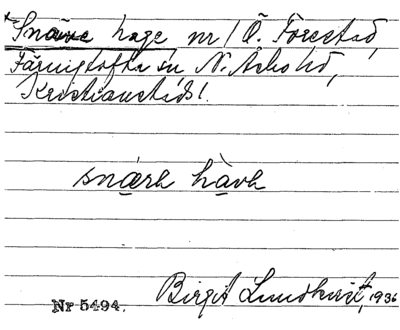 *Snäve hage nr 1 Ö. Förestad,
Färingtofta sn N. Åsbo hd,
Kristianstads l.
snärh hàvh
Nr 5494. Birgit Lundkvist, 1936